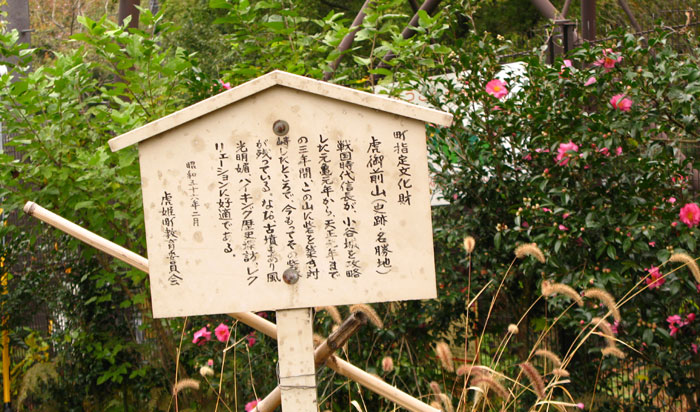 町指定文化財
虎御前山(史跡・名勝地)
戦国時代信長が、小谷城を攻略
した元亀元年から、天正元年まで
の三年間、この山に砦を築き対
峙したところで、今もってその砦跡
が残っている。なお、古墳もあり風
光明媚、ハイキング、歴史探訪、レク
リエーションに好適である。
昭和五十八年二月
虎姫町教育委員会